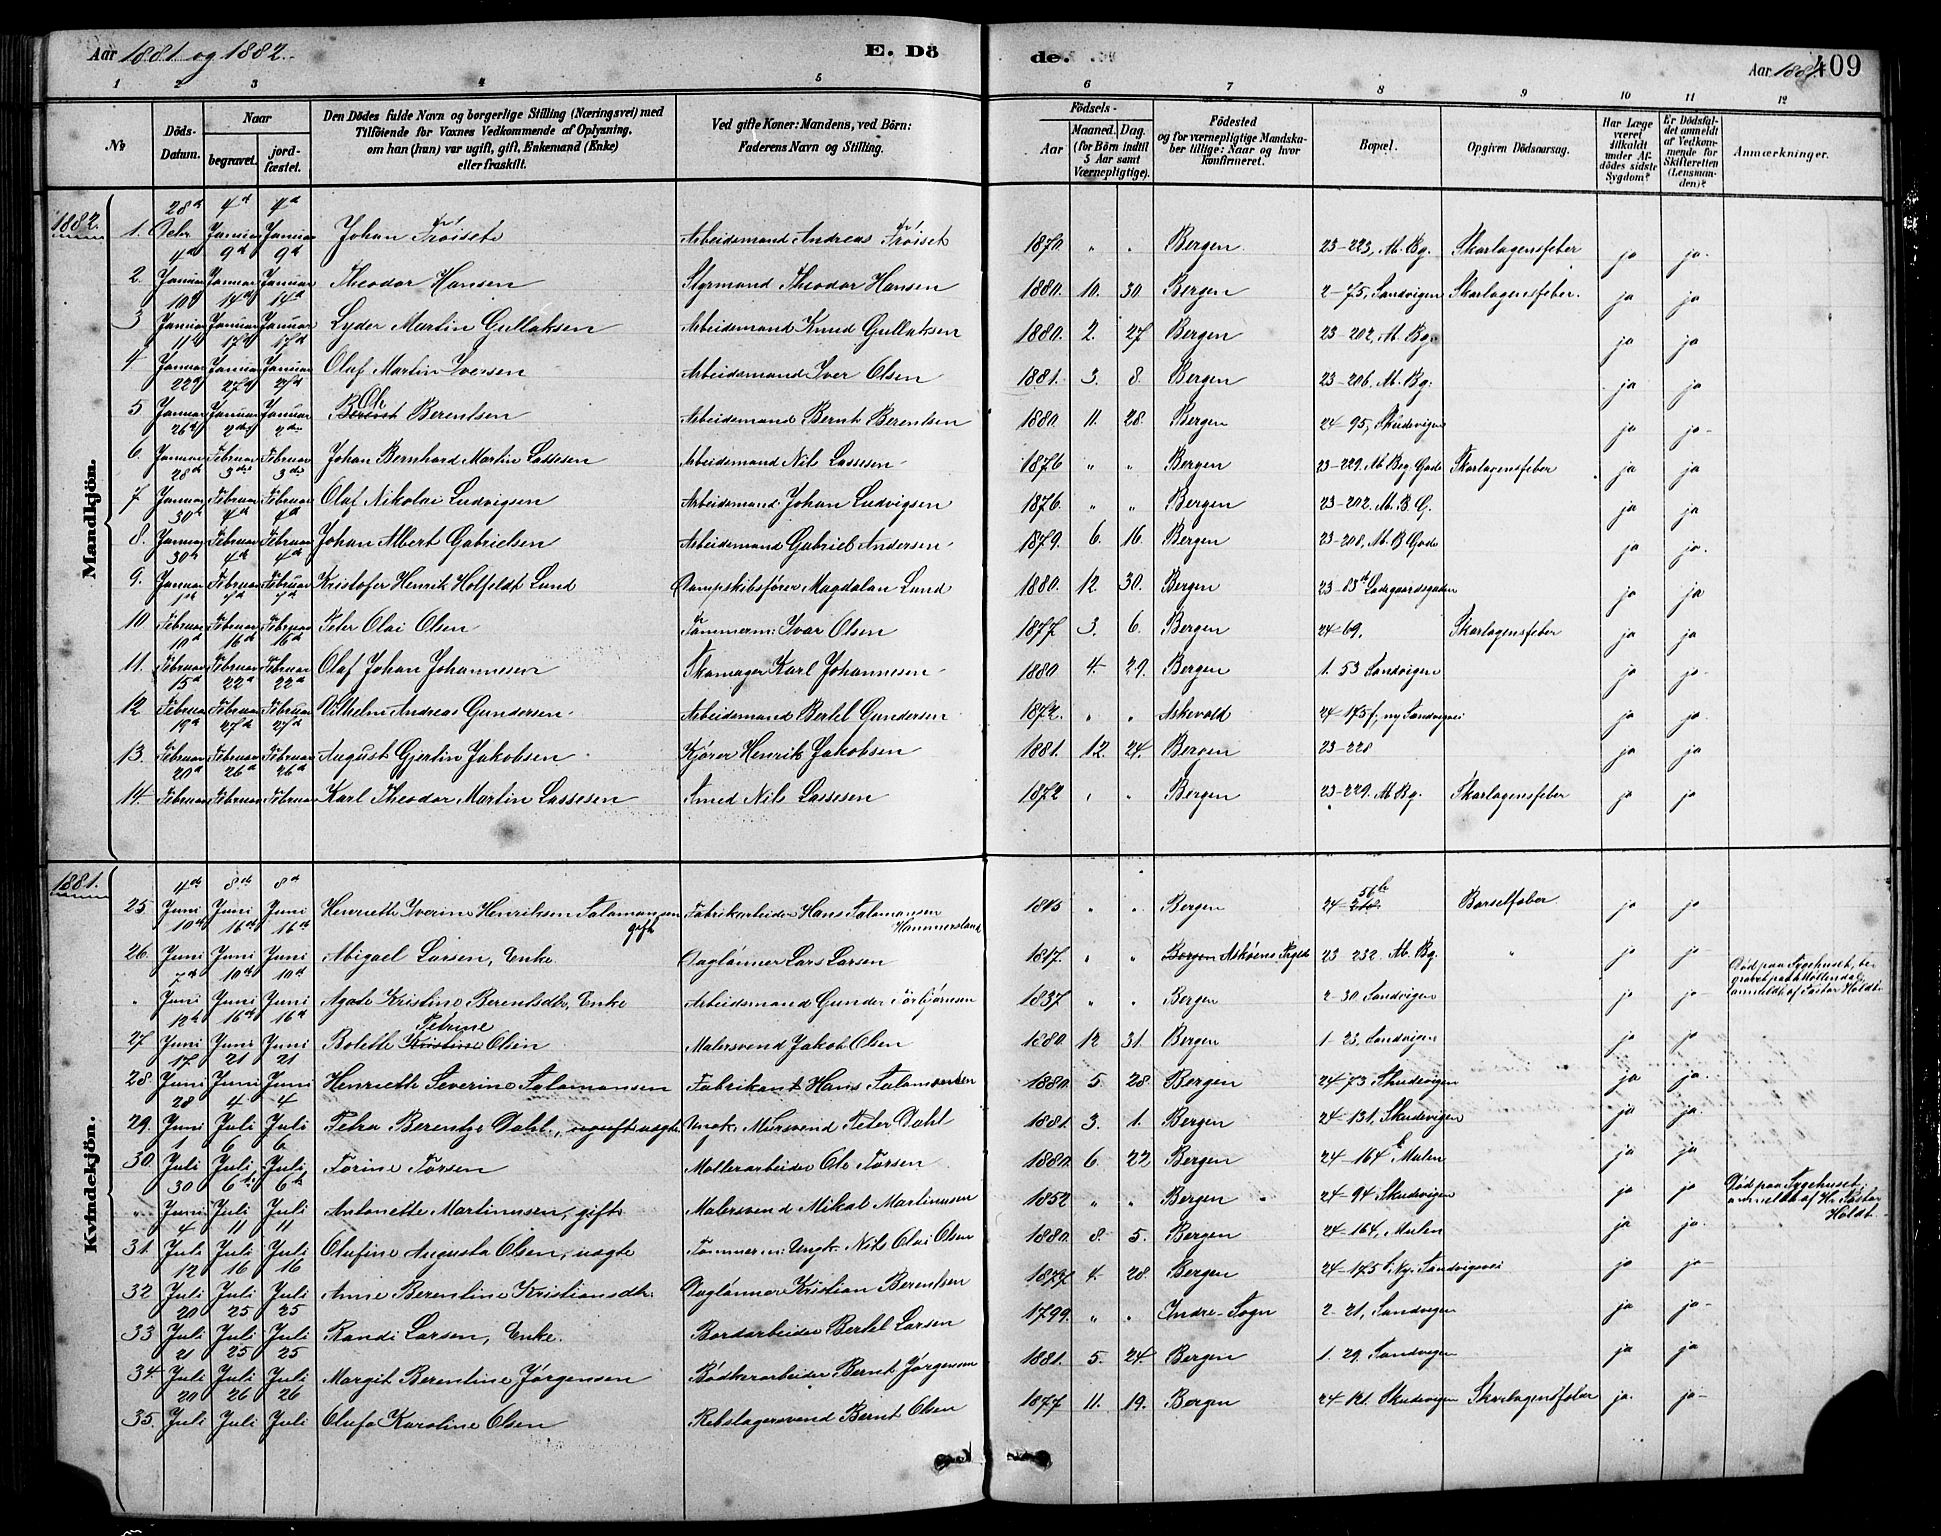 Aar 1881 og 1882.
E. Dö de.
Aar 188
409
1 2 3 4 5 6 7 8 9 10 11 12
No
Döds-Datum.
Naar
begravet.
jordfæstet.
Den Dödes fulde Navn og borgerlige Stilling (Næringsvei) med
Tilföiende for Voxnes Vedkommende af Oplysning,
om han (hun) var ugift, gift, Enkemand (Enke)
eller fraskilt.
Ved gifte Koner: Mandens, ved Börn:
Faderens Navn og Stilling.
Födsels-
Aar
Maaned. Dag.
(for Börn indtil
5 Aar samt
Værnepligtige).
Födested
og for værnepligtige Mandska-
ber tillige: Naar og hvor
konfirmeret.
Bopæl.
Opgiven Dödsaarsag.
Har Læge
været
tilkaldt
under Af-
dödes sidste
Sygdom?
Er Dödsfal-
det anmeldt
af Vedkom-
mende for
Skifteretten
(Lensman-
den)?
Anmærkninger.
Mandkjön.
1882.
1. 28d Debr 4d Januar 4d Januar Johan Tröiset Arbeidsmand Andreas Tröiset 1870 " " Bergen 23-223, M. Bg. Skarlagensfeber ja ja.
2. 4d Januar 9d Januar 9d Januar Theodor Hansen Styrmand Theodor Hansen 1880. 10. 30 Bergen 2-75, Sandvigen Skarlagensfeber. ja ja
3 10d Januar 14d Januar 14d Januar Lyder Martin Gullaksen Arbeidsmand Knud Gullaksen 1880. 2. 27 Bergen 23-202, M. Bg. ja ja
4 11d Januar 17d Januar 17d Januar Olaf Martin Iversen Arbeidsmand Iver Olsen 1881. 3. 8. Bergen 23-206. M. Bg. ja ja
5 22d Januar 27d Januar 27d Januar Ole Berentsen Arbeidsmand Bernt Berentsen 1880 11. 28 Bergen 24-95, Skudevigen ja ja-
6. 26d Januar 2den Februar 2den Februar Johan Bernhard Martin Lassesen Arbeidsmand Nils Lassesen 1876 " " Bergen 23-229. M. Bg. Gade Skarlagensfeber ja ja
7 28d Januar 3die Februar 3die Februar Olaf Nikolai Ludvigsen Arbeidsmand Johan Ludvigsen 1876. " " Bergen 23-202. M. B. G. ja ja
8. 30d Januar 4d Februar 4d Februar Johan Albert Gabrielsen Arbeidsmand Gabriel Andersen 1879. 6. 16. Bergen 23-208, M. B. Gade ja ja.
9. 30d Januar 4d Februar 4d Februar Kristofer Henrik Holfeldt Lund Dampskibsfører Magdalon Lund 1880. 12. 30. Bergen 23-Ladegaardsgaden ja ja
10 1d Februar 7d Februar 7d Februar Peter Olai Olsen Tömmerm: Ivar Olsen 1877 3. 6. Bergen 24-69. Skarlagensfeber ja ja
11. 10d Februar 16d Februar 16d Februar Olaf Johan Johannesen Skomager Karl Johannesen 1880 4. 29. Bergen 1.53 Sandvigen ja ja-
12 15d Februar 22d Februar 22d Februar Vilhelm Andreas Gundersen Arbeidsmand Bertel Gundersen 1872. " " Askevold 24-175f, ny Sandvigsvei ja ja.
13. 19d Februar 27d Februar 27d Februar August Gjertin Jakobsen Kjører Henrik Jakobsen 1881. 12 24. Bergen 23-228 ja ja
14. 20d Februar 26d Februar 26d Februar Karl Theodor Martin Lassesen Smed Nils Lassesen 1872 " " Bergen 23-229. M. Bg. Skarlagensfeber ja ja
Kvindekjön.
1881.
25 4d Juni 8d Juni 8d Juni Henriette Iverine Henriksen Salamonsen gift Fabrikarbeider Hans Salamonsen Hammersland 1845 " " Bergen 24-51b Barselfeber ja ja
26. 10d Juni 16d Juni 16d Juni Abigael Larsen, Enke Daglönner Lars Larsen 1817. " " Bergen Askøens Prgld 23 232 M. Bg. " ja ja-
" 7d Juni 10d Juni 10d Juni Agate Kristine Berentsdtr, Enke Arbeidsmand Gunder Torbjörnsen 1837 " " Bergen 2-30 Sandvigen ja ja- Död paa Sygehuset, be-
gravet paa Möllendal,
anmeldt af Pastor Holdt
27 12d Juni 16d Juni 16d Juni Bolette Petrine Kristine Olsen Malersvend Jakob Olsen 1880 12 31. Bergen 1-23, Sandvigen ja ja
28 17 Juni 21 Juni 21 Juni Henriette Severine Salamonsen Fabrikant Hans Salamonsen 1880. 5. 28. Bergen 24-73 Skudevigen ja ja.
29. 28 Juni 4 Juli 4 Juli Petra Berentje Dahl, uægte Ungk. Mursvend Peter Dahl 1881. 3. 1. Bergen 24-131, Skudevigen ja ja
30. 1 Juli 6 Juli 6 Juli Torine Torsen Möllerarbeider Ole Torsen 1880. 6. 22 Bergen 24-164 E Mulen ja ja
" 30 Juni 6t Juli 6t Juli Antonette Martinusen, gift Malersvend Mikal Martinusen 1852 " " Bergen 24-94 Skudevigen ja ja Död paa Sygehuset,
anmeldt af Hr. Pastor
Holdt
31. 4 Juli 11 Juli 11 Juli Olufine Augusta Olsen, uægte Tömmerm: Ungk. Nils Olai Olsen 1880. 8. 5. Bergen 24-164, Mulen ja ja.
32 12 Juli 16 Juli 16 Juli Anne Berentine Kristiansdtr. Daglönner Kristian Berentsen 1877. 4. 28. Bergen 24-175 f. Ny. Sandvigsvei ja ja-
33 20 Juli 25 Juli 25 Juli Randi Larsen, Enke. Bordarbeider Bertel Larsen 1799. " " Indre-Sogn 2-21, Sandvigen ja ja-
34. 21 Juli 25 Juli 25 Juli Margit Berentine Jörgensen Bödkerarbeider Bernt Jörgensen 1881. 5. 24. Bergen 1. 29. Sandvigen ja ja
35. 20 Juli 26 Juli 26 Juli Olufa Karoline Olsen Rebslagersvend Bernt Olsen 1877 11. 19. Bergen 24-121. Skudevigen Skarlagensfeber ja. ja-